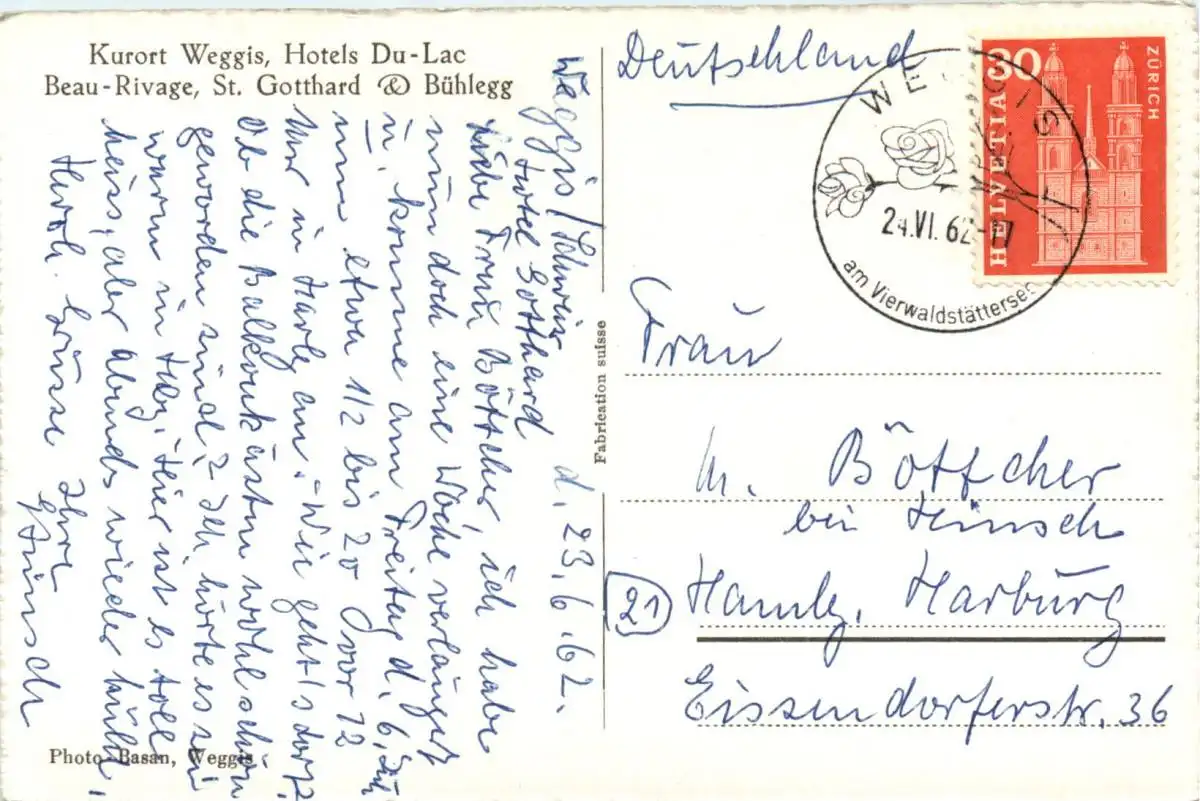 Kurort Weggis, Hotels Du-Lac
Beau-Rivage, St. Gotthard & Bühlegg
Weggis/Schweiz d. 23.6.62.
Hotel Gotthard
Liebe Frau Böttcher, ich habe
nun doch eine Woche verlängert
u. komme am Freitag d. 6. Juli
nun etwa 1/2 bis 20 vor 12
Uhr in Harbg an. Wie geht's dort?
Ob die Balkonkästen wohl schön
geworden sind? Ich hörte es sei
warm in Hbg. Hier ist es toll
heiss, aber abends wieder kühl.
Herzl. Grüsse Ihre
G Hinsch
Photo Basan, Weggis
Fabrication suisse
Deutschland
WEGGIS
24.VI.62-17
am Vierwaldstättersee
30
HELVETIA
ZÜRICH
Frau
M. Böttcher
bei Hinsch
(21) Hambg. Harburg
Eissendorferstr. 36